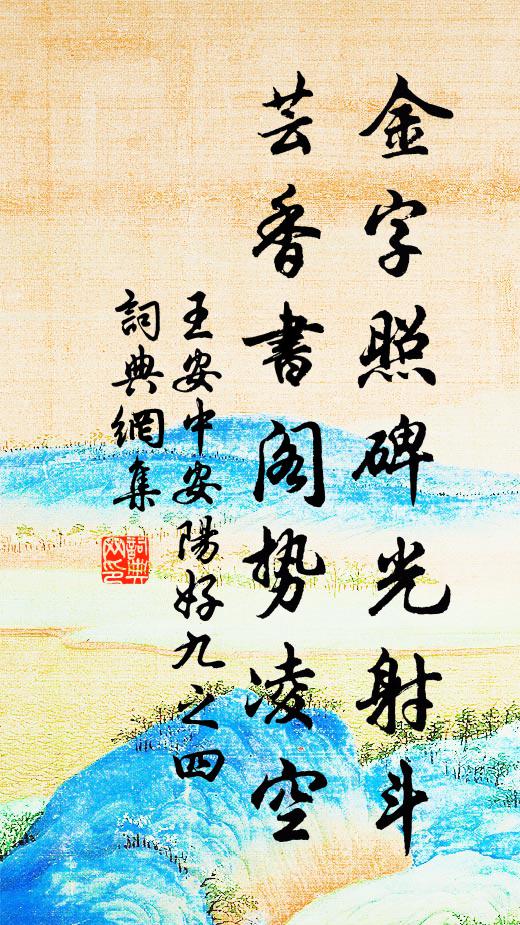 金字照碑光射斗
芸香書阁势凌空
王安中安陽好九之四
詞典網集
詞典網印